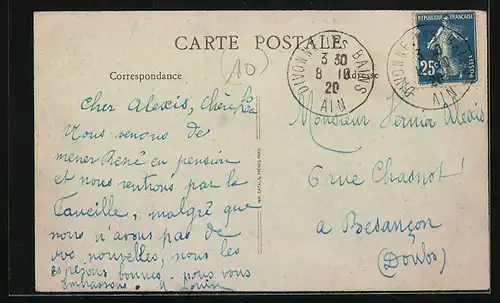 CARTE POSTALE
(10)
Correspondance
Adresse
DIVONNE LES BAINS
3 30
8 10
20
AIN
REPUBLIQUE FRANÇAISE
25c
POSTES
DIVONNE
AIN
Cher Alexis, Chère
Vous venons de
mener René en pension
et nous rentrons par la
Faucille, malgré que
nous n'avons pas de
vos nouvelles, nous les
espérons bonnes. nous vous
embrassons. Louis
Monsieur Vernier Alexis
6 rue Chasnot
a Besançon
(Doubs)